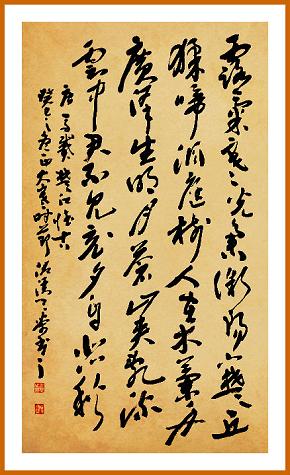 露氣寒光集微陽下楚丘
猿啼洞庭樹人在木蘭舟
廣澤生明月蒼山夾亂流
雲中君不見竟夕自悲秋
唐馬戴楚江懷古
癸巳之 大寒時節